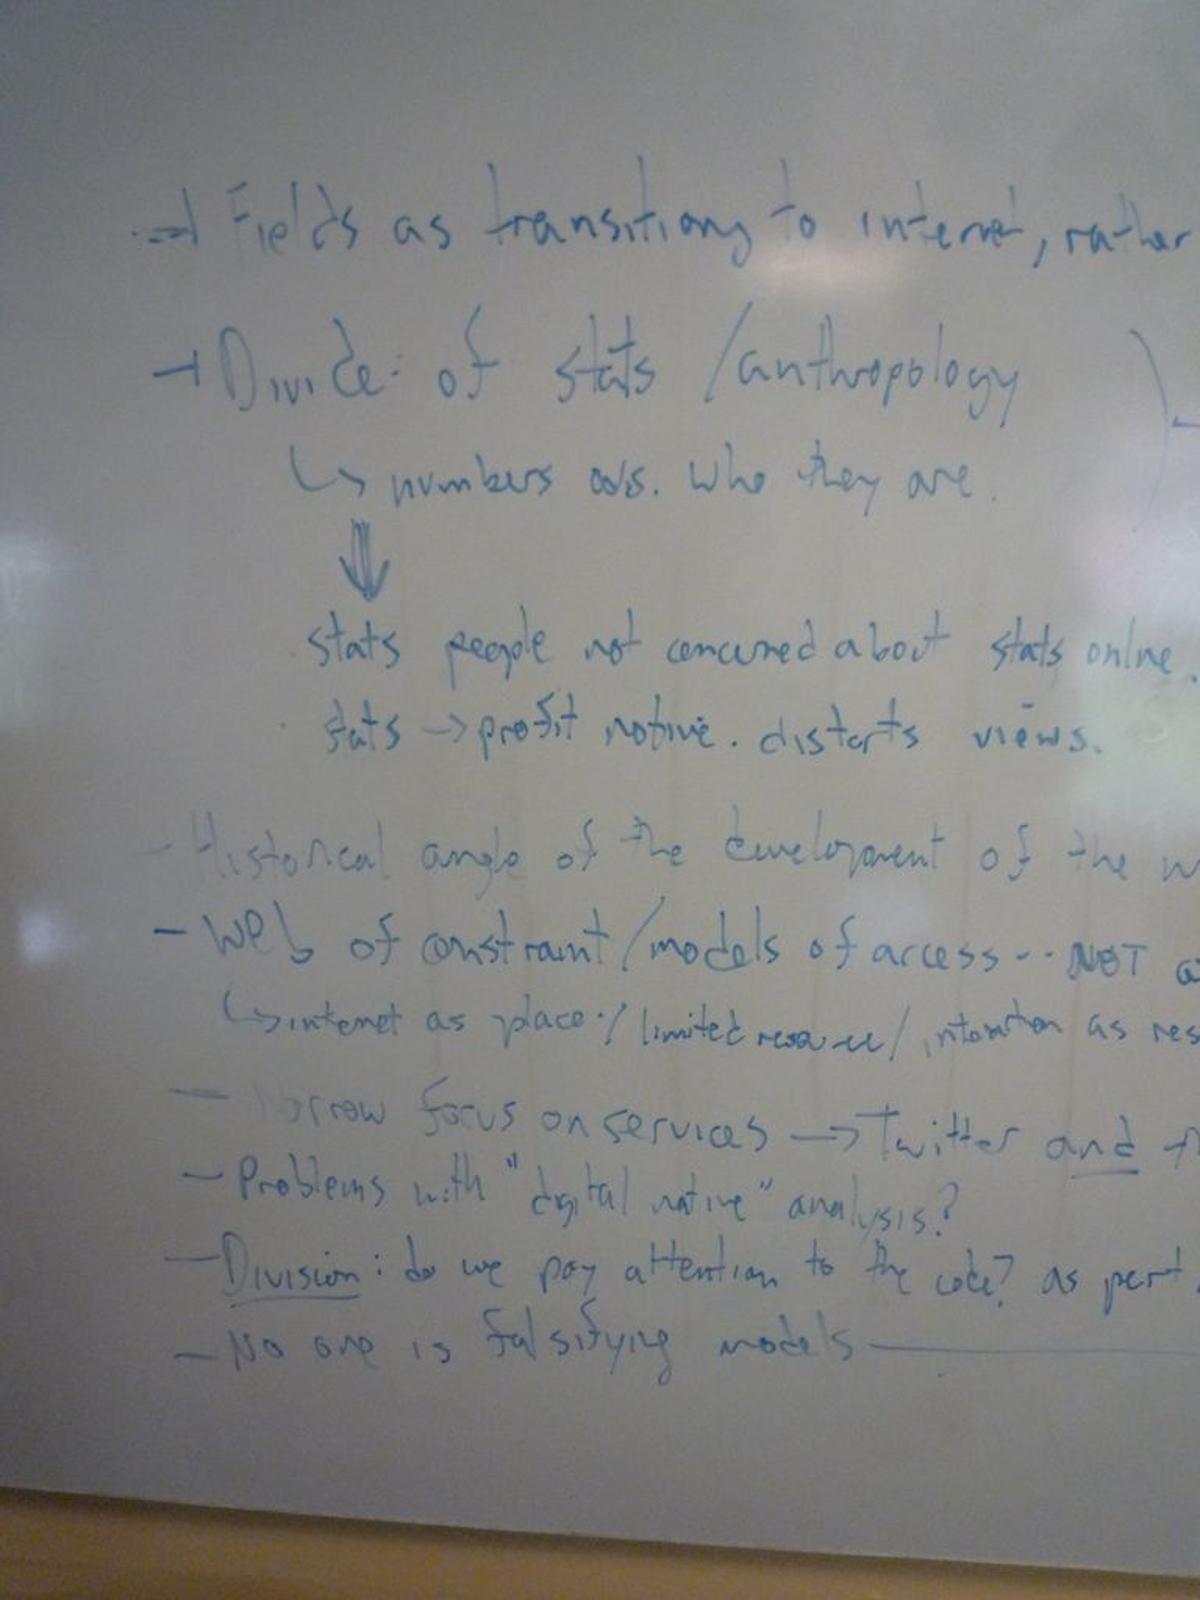 → Fields as transitioning to internet, rather
→ Divide: of stats / anthropology
↳ numbers vs. who they are.
stats people not concerned about stats online.
stats → profit motive. distorts views.
- Historical angle of the development of the
- Web of constraint / models of access... NOT
↳ internet as place / limited resource / as
- Narrow focus on services → Twitter and
- Problems with "digital native" analysis?
- Division: do we pay attention to the code? as part
- No one is falsifying models